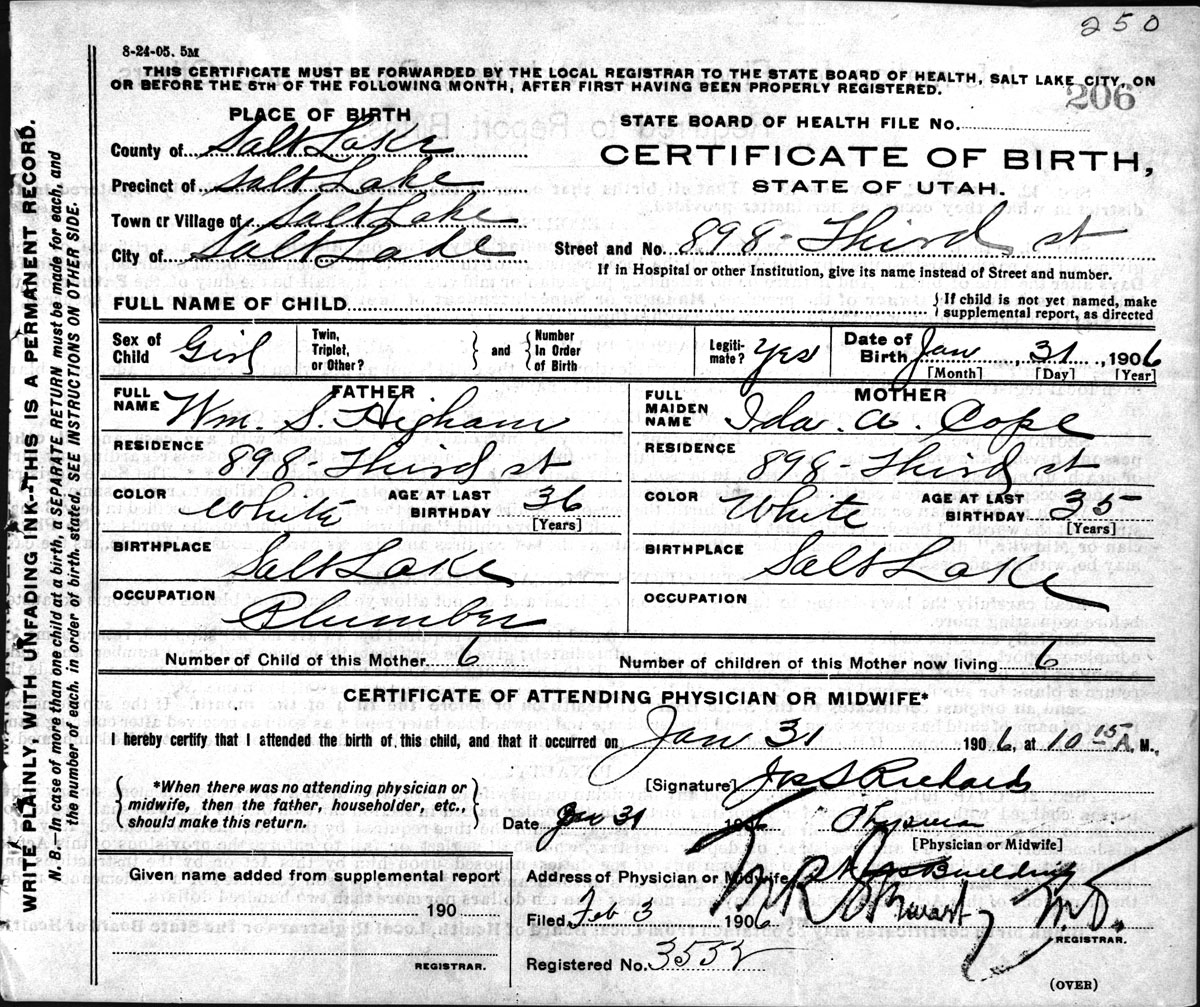 250
8-24-05. 5M
THIS CERTIFICATE MUST BE FORWARDED BY THE LOCAL REGISTRAR TO THE STATE BOARD OF HEALTH, SALT LAKE CITY, ON
OR BEFORE THE 5TH OF THE FOLLOWING MONTH, AFTER FIRST HAVING BEEN PROPERLY REGISTERED.
206
PLACE OF BIRTH
STATE BOARD OF HEALTH FILE No.
County of Salt Lake
CERTIFICATE OF BIRTH,
Precinct of Salt Lake
STATE OF UTAH.
Town or Village of Salt Lake
City of Salt Lake
Street and No. 898 - Third st
If in Hospital or other Institution, give its name instead of Street and number.
FULL NAME OF CHILD
If child is not yet named, make
supplemental report, as directed
Sex of Child Girl
Twin, Triplet, or Other?
and
Number In Order of Birth
Legiti-mate? Yes
Date of Birth Jan 31, 1906
[Month] [Day] [Year]
FATHER
FULL NAME Wm. S. Higham
MOTHER
FULL MAIDEN NAME Ida. A. Cope
RESIDENCE 898 - Third st
RESIDENCE 898 - Third st
COLOR White AGE AT LAST BIRTHDAY 36 [Years]
COLOR White AGE AT LAST BIRTHDAY 35 [Years]
BIRTHPLACE Salt Lake
BIRTHPLACE Salt Lake
OCCUPATION Plumber
OCCUPATION
Number of Child of this Mother 6
Number of children of this Mother now living 6
CERTIFICATE OF ATTENDING PHYSICIAN OR MIDWIFE*
I hereby certify that I attended the birth of this child, and that it occurred on Jan 31 1906 at 10 15 A. M.,
*When there was no attending physician or
midwife, then the father, householder, etc.,
should make this return.
[Signature] Jos S Richards
Date Jan 31 1906 Physician
[Physician or Midwife]
Given name added from supplemental report
190
REGISTRAR.
Address of Physician or Midwife Building
Filed Feb 3 1906 M.D.
REGISTRAR.
Registered No. 3552
(OVER)
WRITE PLAINLY, WITH UNFADING INK-THIS IS A PERMANENT RECORD.
N. B.-In case of more than one child at a birth, a SEPARATE RETURN must be made for each and
the number of each, in order of birth, stated. SEE INSTRUCTIONS ON OTHER SIDE.